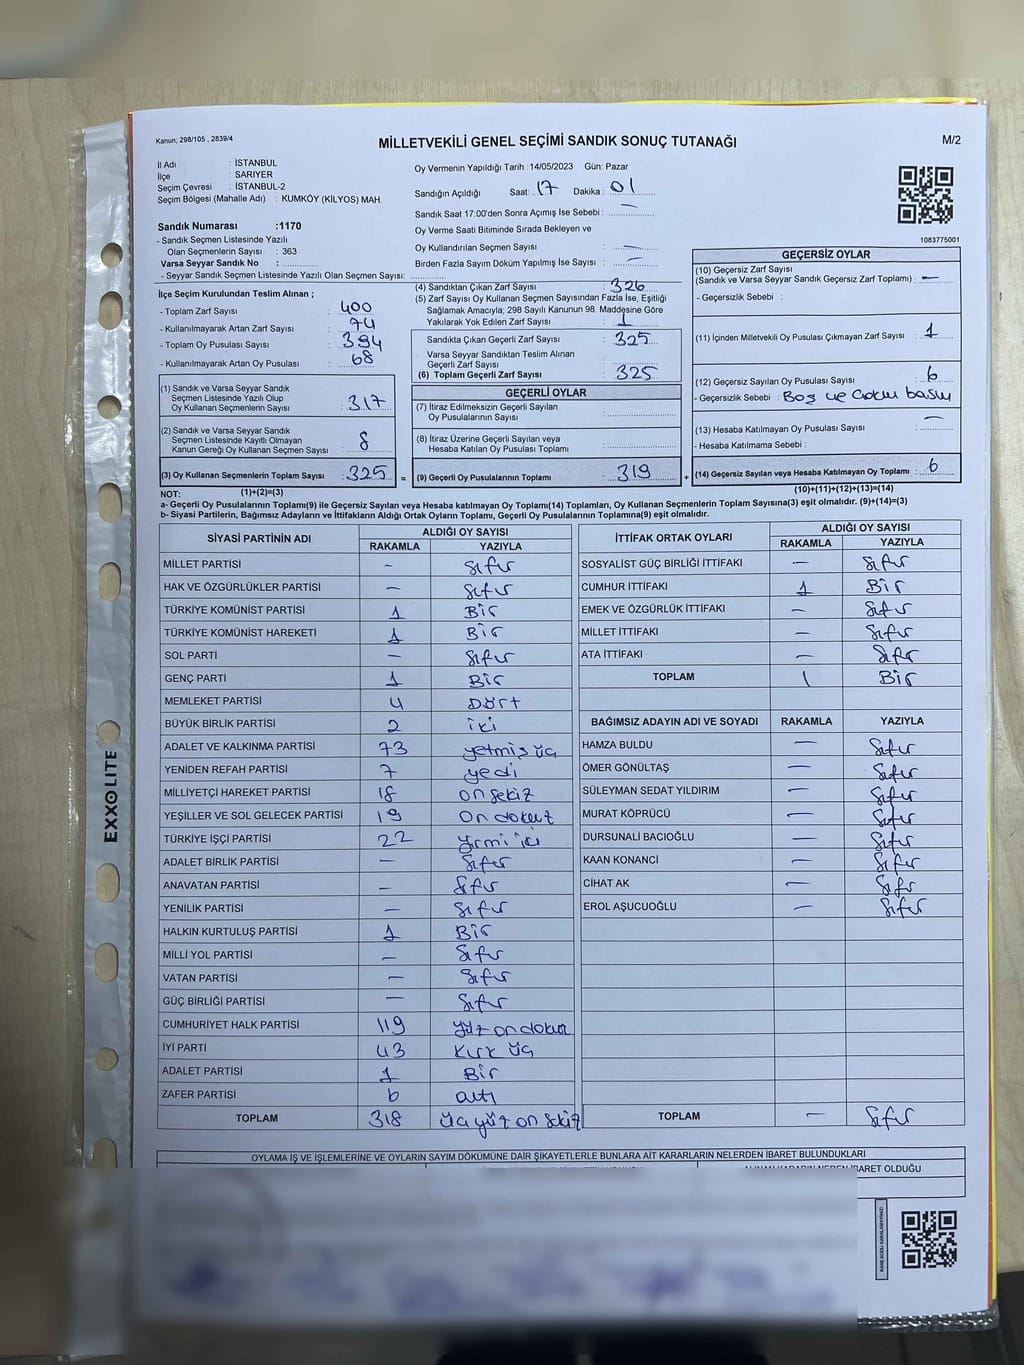 Kanun: 298/105 , 2839/4
MİLLETVEKİLİ GENEL SEÇİMİ SANDIK SONUÇ TUTANAĞI
M/2
İl Adı : İSTANBUL
İlçe : SARIYER
Seçim Çevresi : İSTANBUL-2
Seçim Bölgesi (Mahalle Adı) : KUMKÖY (KİLYOS) MAH.
Sandık Numarası :1170
- Sandık Seçmen Listesinde Yazılı
Olan Seçmenlerin Sayısı : 363
Varsa Seyyar Sandık No :
- Seyyar Sandık Seçmen Listesinde Yazılı Olan Seçmen Sayısı:
Oy Vermenin Yapıldığı Tarih :14/05/2023 Gün: Pazar
Sandığın Açıldığı Saat: 17 Dakika : 01
Sandık Saat 17:00'den Sonra Açımış İse Sebebi : —
Oy Verme Saati Bitiminde Sırada Bekleyen ve
Oy Kullandırılan Seçmen Sayısı : —
Birden Fazla Sayım Döküm Yapılmış İse Sayısı : —
1083775001
İlçe Seçim Kurulundan Teslim Alınan ;
- Toplam Zarf Sayısı : 400
- Kullanılmayarak Artan Zarf Sayısı : 74
- Toplam Oy Pusulası Sayısı : 394
- Kullanılmayarak Artan Oy Pusulası : 68
(1) Sandık ve Varsa Seyyar Sandık
Seçmen Listesinde Yazılı Olup
Oy Kullanan Seçmenlerin Sayısı : 317
(2) Sandık ve Varsa Seyyar Sandık
Seçmen Listesinde Kayıtlı Olmayan
Kanun Gereği Oy Kullanan Seçmen Sayısı : 8
(3) Oy Kullanan Seçmenlerin Toplam Sayısı : 325 =
(4) Sandıktan Çıkan Zarf Sayısı : 326
(5) Zarf Sayısı Oy Kullanan Seçmen Sayısından Fazla İse, Eşitliği
Sağlamak Amacıyla; 298 Sayılı Kanunun 98. Maddesine Göre
Yakılarak Yok Edilen Zarf Sayısı : 1
Sandıkta Çıkan Geçerli Zarf Sayısı : 325
Varsa Seyyar Sandıktan Teslim Alınan
Geçerli Zarf Sayısı :
(6) Toplam Geçerli Zarf Sayısı : 325
GEÇERLİ OYLAR
(7) İtiraz Edilmeksizin Geçerli Sayılan
Oy Pusulalarının Sayısı :
(8) İtiraz Üzerine Geçerli Sayılan veya
Hesaba Katılan Oy Pusulası Toplamı :
(9) Geçerli Oy Pusulalarının Toplamı : 319 +
GEÇERSİZ OYLAR
(10) Geçersiz Zarf Sayısı
(Sandık ve Varsa Seyyar Sandık Geçersiz Zarf Toplamı) : —
- Geçersizlik Sebebi :
(11) İçinden Milletvekili Oy Pusulası Çıkmayan Zarf Sayısı : 1
(12) Geçersiz Sayılan Oy Pusulası Sayısı : 6
- Geçersizlik Sebebi : Boş ve
(13) Hesaba Katılmayan Oy Pusulası Sayısı : —
- Hesaba Katılmama Sebebi :
(14) Geçersiz Sayılan veya Hesaba Katılmayan Oy Toplamı : 6
NOT: (1)+(2)=(3) (10)+(11)+(12)+(13)=(14)
a- Geçerli Oy Pusulalarının Toplamı(9) ile Geçersiz Sayılan veya Hesaba katılmayan Oy Toplamı(14) Toplamları, Oy Kullanan Seçmenlerin Toplam Sayısına(3) eşit olmalıdır. (9)+(14)=(3)
b- Siyasi Partilerin, Bağımsız Adayların ve İttifakların Aldığı Ortak Oyların Toplamı, Geçerli Oy Pusulalarının Toplamına(9) eşit olmalıdır.
SİYASİ PARTİNİN ADI ALDIĞI OY SAYISI
RAKAMLA YAZIYLA
MİLLET PARTİSİ - Sıfır
HAK VE ÖZGÜRLÜKLER PARTİSİ - Sıfır
TÜRKİYE KOMÜNİST PARTİSİ 1 Bir
TÜRKİYE KOMÜNİST HAREKETİ 1 Bir
SOL PARTİ - Sıfır
GENÇ PARTİ 1 Bir
MEMLEKET PARTİSİ 4 Dört
BÜYÜK BİRLİK PARTİSİ 2 iki
ADALET VE KALKINMA PARTİSİ 73 yetmiş üç
YENİDEN REFAH PARTİSİ 7 yedi
MİLLİYETÇİ HAREKET PARTİSİ 18 on sekiz
YEŞİLLER VE SOL GELECEK PARTİSİ 19 on dokuz
TÜRKİYE İŞÇİ PARTİSİ 22 yirmi iki
ADALET BİRLİK PARTİSİ - Sıfır
ANAVATAN PARTİSİ - Sıfır
YENİLİK PARTİSİ - Sıfır
HALKIN KURTULUŞ PARTİSİ 1 Bir
MİLLİ YOL PARTİSİ - Sıfır
VATAN PARTİSİ - Sıfır
GÜÇ BİRLİĞİ PARTİSİ - Sıfır
CUMHURİYET HALK PARTİSİ 119 yüz on dokuz
İYİ PARTİ 43 kırk üç
ADALET PARTİSİ 1 Bir
ZAFER PARTİSİ 6 altı
TOPLAM 318 üç yüz on sekiz
İTTİFAK ORTAK OYLARI ALDIĞI OY SAYISI
RAKAMLA YAZIYLA
SOSYALİST GÜÇ BİRLİĞİ İTTİFAKI — Sıfır
CUMHUR İTTİFAKI 1 Bir
EMEK VE ÖZGÜRLÜK İTTİFAKI — Sıfır
MİLLET İTTİFAKI — Sıfır
ATA İTTİFAKI — Sıfır
TOPLAM 1 Bir
BAĞIMSIZ ADAYIN ADI VE SOYADI RAKAMLA YAZIYLA
HAMZA BULDU — Sıfır
ÖMER GÖNÜLTAŞ — Sıfır
SÜLEYMAN SEDAT YILDIRIM — Sıfır
MURAT KÖPRÜCÜ — Sıfır
DURSUNALİ BACIOĞLU — Sıfır
KAAN KONANCİ — Sıfır
CİHAT AK — Sıfır
EROL AŞUCUOĞLU — Sıfır
TOPLAM — Sıfır
OYLAMA İŞ VE İŞLEMLERİNE VE OYLARIN SAYIM DÖKÜMÜNE DAİR ŞİKAYETLERLE BUNLARA AİT KARARLARIN NELERDEN İBARET BULUNDUKLARI
İBARET OLDUĞU
EXXO LITE